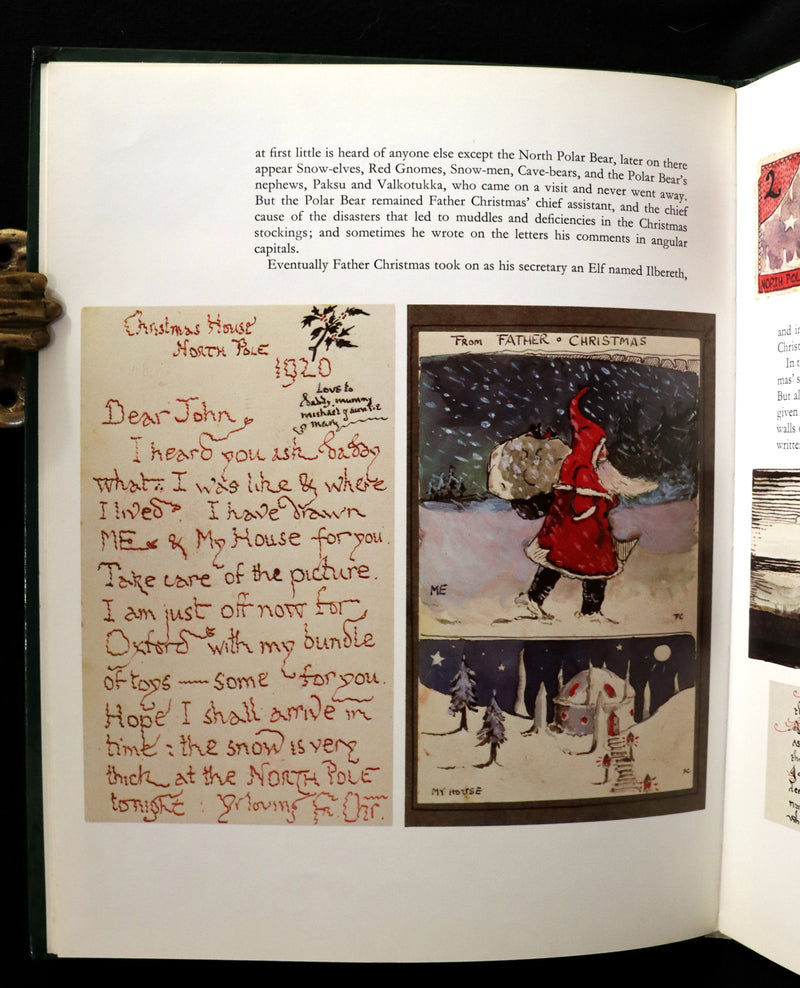 at first little is heard of anyone else except the North Polar Bear, later on there
appear Snow-elves, Red Gnomes, Snow-men, Cave-bears, and the Polar Bear's
nephews, Paksu and Valkotukka, who came on a visit and never went away.
But the Polar Bear remained Father Christmas' chief assistant, and the chief
cause of the disasters that led to muddles and deficiencies in the Christmas
stockings; and sometimes he wrote on the letters his comments in angular
capitals.
Eventually Father Christmas took on as his secretary an Elf named Ilbereth,
Christmas House
NORTH POLE
1920
Love to
daddy, mummy
michael & auntie
mary
Dear John
I heard you ask daddy
what I was like & where
I lived. I have drawn
ME & My House for you.
Take care of the picture.
I am just off now for
Oxford with my bundle
of toys — some for you.
Hope I shall arrive in
time: the snow is very
thick at the NORTH POLE
tonight: Yr loving Fr. Chr.
FROM FATHER CHRISTMAS
ME
FC
MY HOUSE
FC
2
NORTH POL
and i
Christ
In t
mas' s
But al
given
walls
writte